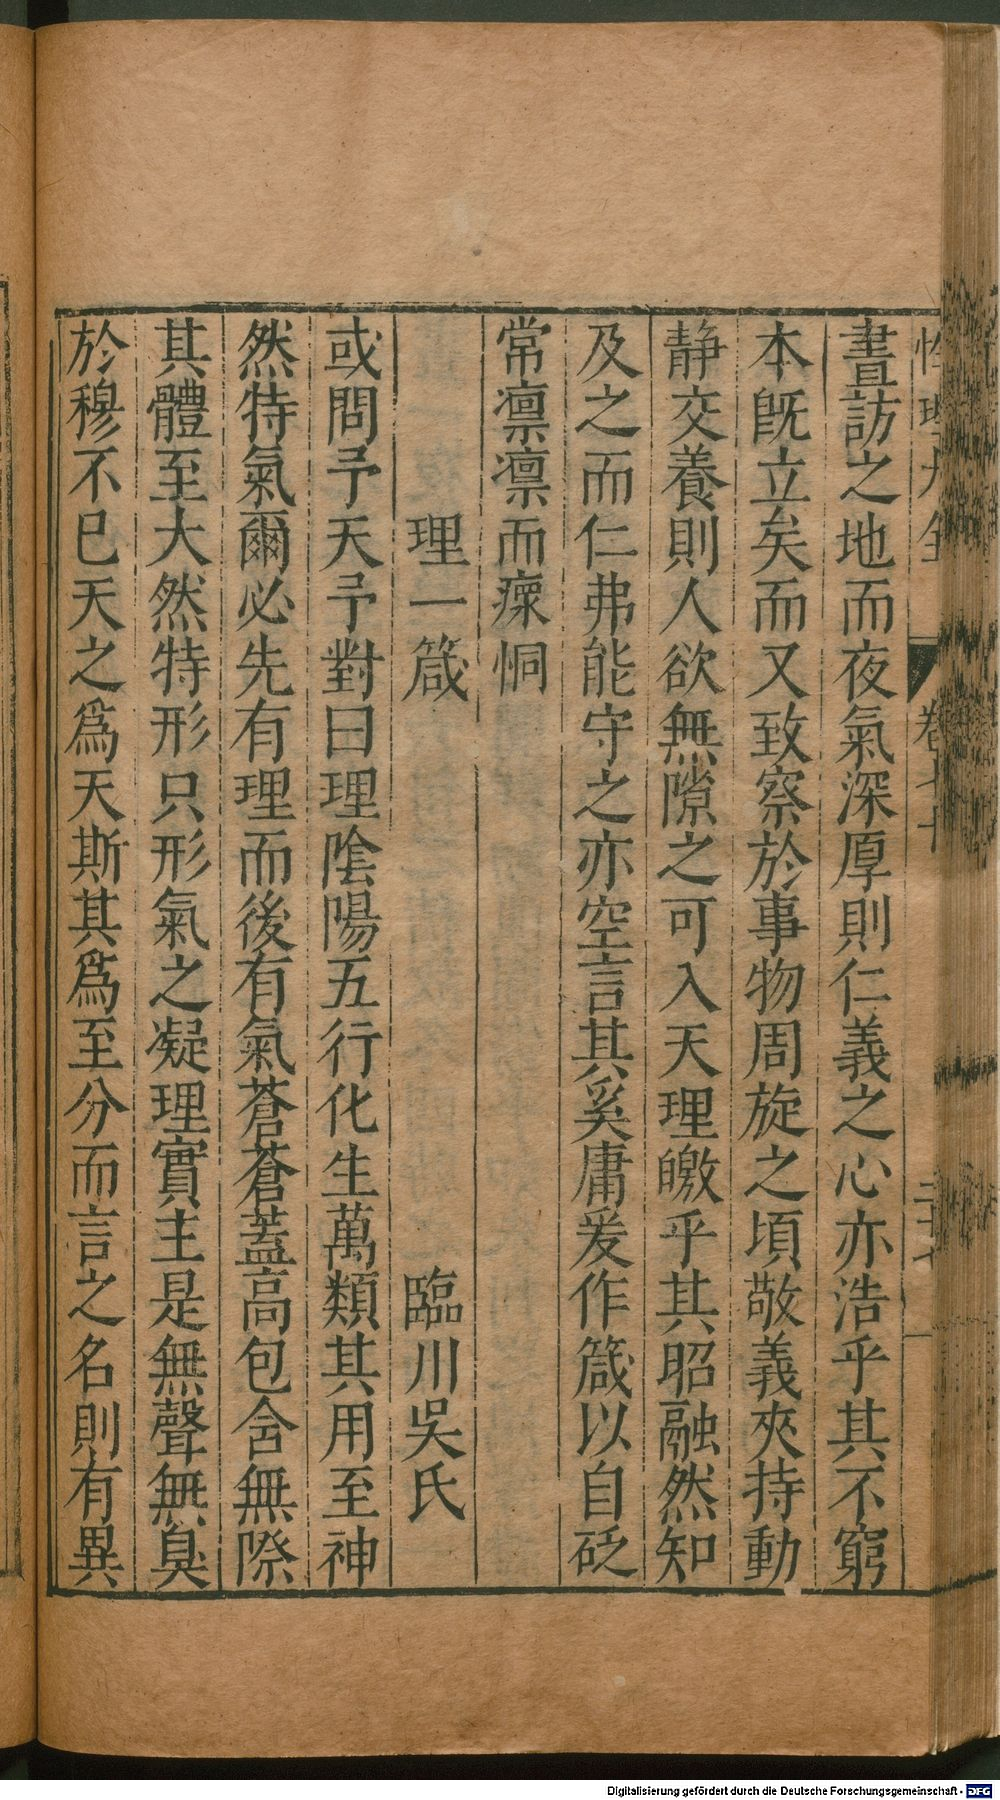 性理大全 卷七十 二十七
晝訪之地而夜氣深厚則仁義之心亦浩乎其不窮
本既立矣而又致察於事物周旋之頃敬義夾持動
静交養則人欲無隙之可入天理皦乎其昭融然知
及之而仁弗能守之亦空言其奚庸爰作箴以自砭
常凛凛而瘝恫
理一箴 臨川吳氏
或問予天予對曰理陰陽五行化生萬類其用至神
然特氣爾必先有理而後有氣蒼蒼蓋高包含無際
其體至大然特形只形氣之凝理實主是無聲無臭
於穆不已天之爲天斯其爲至分而言之名則有異
Digitalisierung gefördert durch die Deutsche Forschungsgemeinschaft - DFG